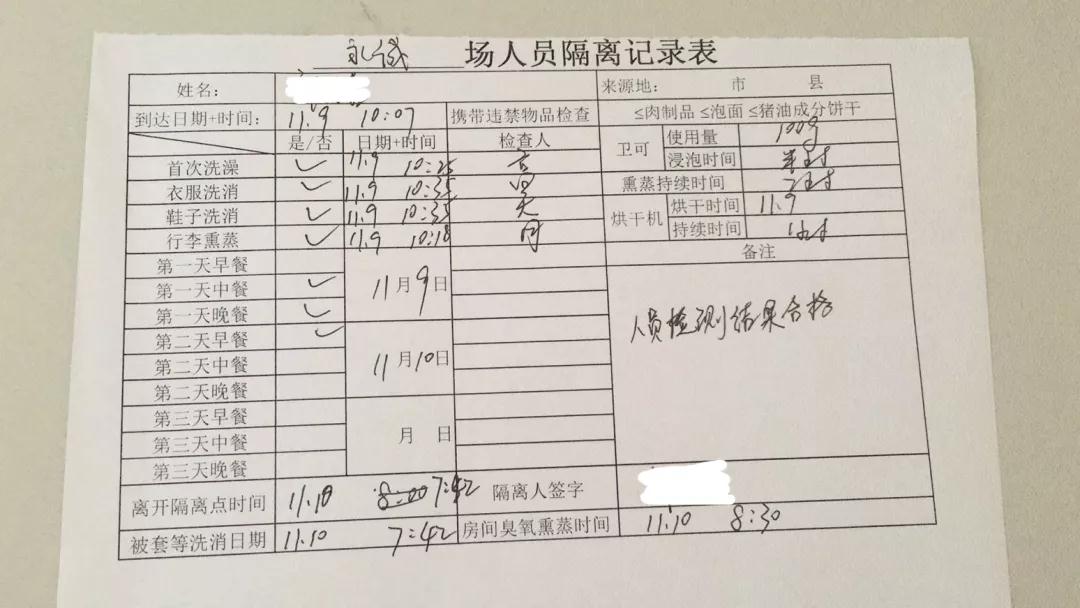 场人员隔离记录表
姓名: 来源地: 市 县
到达日期+时间: 11.9 10:07 携带违禁物品检查 ≤肉制品 ≤泡面 ≤猪油成分饼干
是/否 日期+时间 检查人 卫可 使用量 100g
首次洗澡 ✓ 11.9 10:25 浸泡时间
衣服洗消 ✓ 11.9 10:35 熏蒸持续时间
鞋子洗消 ✓ 11.9 10:35 烘干机 烘干时间 11.9
行李熏蒸 ✓ 11.9 10:18 持续时间
第一天早餐 备注
第一天中餐 ✓ 11月9日
第一天晚餐 ✓ 人员检测结果合格
第二天早餐 ✓
第二天中餐 11月10日
第二天晚餐
第三天早餐
第三天中餐 月 日
第三天晚餐
离开隔离点时间 11.10 8:00 7:42 隔离人签字
被套等洗消日期 11.10 7:42 房间臭氧熏蒸时间 11.10 8:30